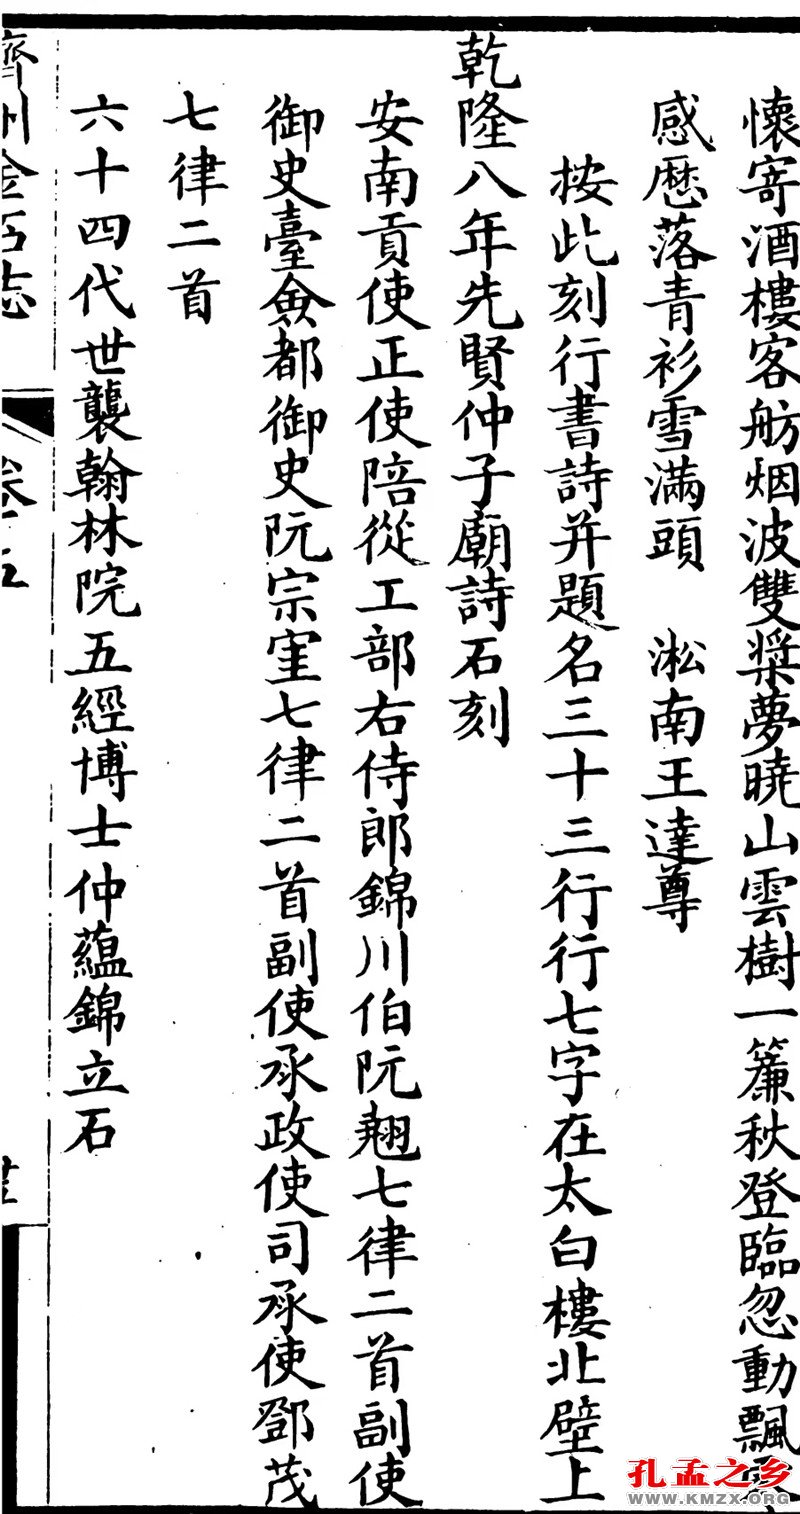 懷寄酒樓客舫烟波雙槳夢曉山雲樹一簾秋登臨忽動飄
感歴落青衫雪滿頭　淞南王達尊
按此刻行書詩并題名三十三行行七字在太白樓北壁上
乾隆八年先賢仲子廟詩石刻
安南貢使正使陪從工部右侍郎錦川伯阮翹七律二首副使
御史臺僉都御史阮宗窐七律二首副使承政使司承使鄧茂
七律二首
六十四代世襲翰林院五經博士仲蘊錦立石
濟州金石志
卷五
孔孟之乡
WWW.KMZX.ORG